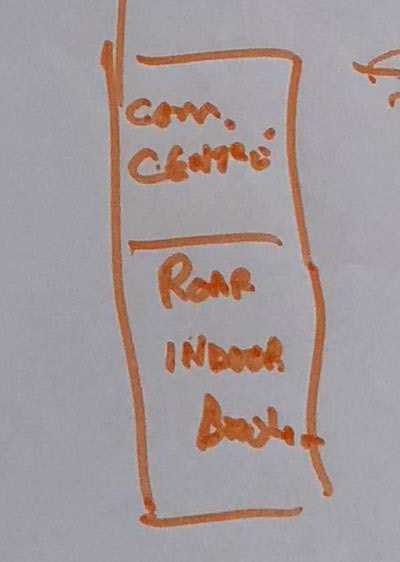 COMM.
CENTRE
ROAR
INDOOR